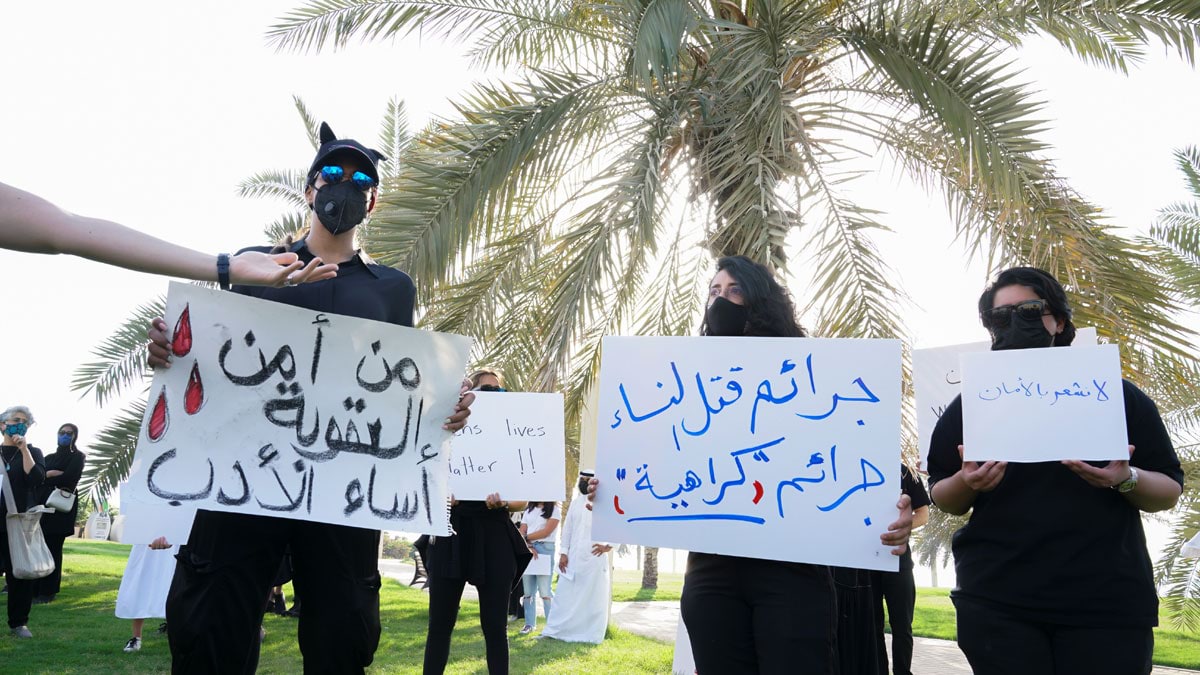 من أمن
العقوبة
أساء الأدب
lives
Matter !!
جرائم قتل النساء
جرائم "كراهية"
لا نشعر بالأمان